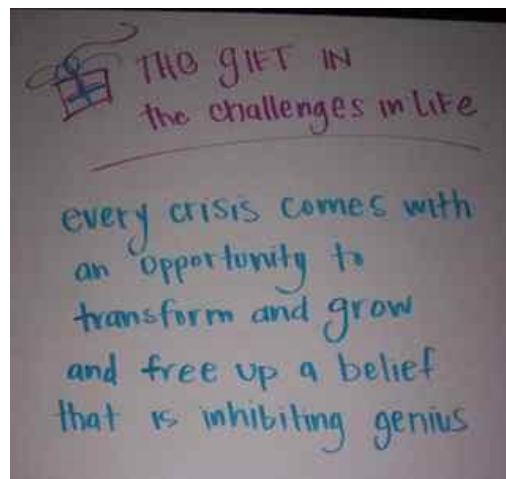 THE gIFT IN
the challenges in life
every crisis comes with
an opportunity to
transform and grow
and free up a belief
that is inhibiting genius